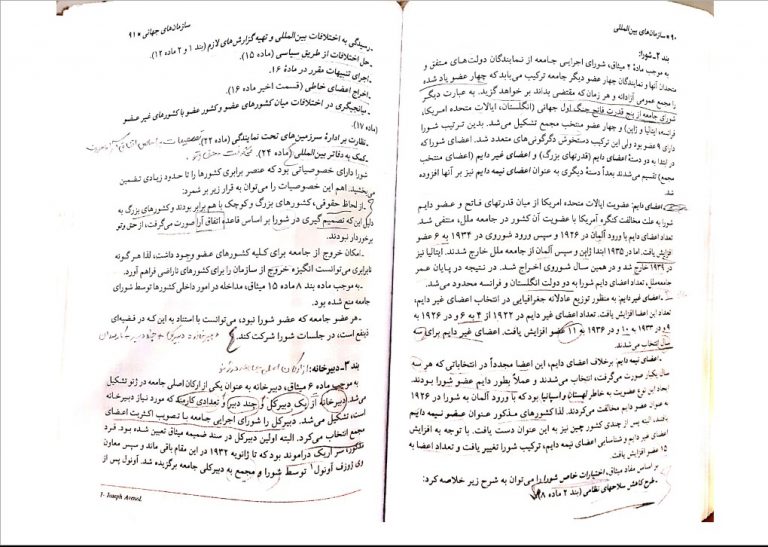 ۹۰ * سازمان‌های بین‌المللی
بند ۲ ـ شورا:
به موجب مادهٔ ۲ میثاق، شورای اجرایی جامعه از نمایندگان دولت‌های متفق و
متحدان آنها و نمایندگان چهار عضو دیگر جامعه ترکیب می‌یابد که چهار عضو یاد شده
را مجمع عمومی آزادانه و هر زمان که مقتضی بداند بر خواهد گزید. به عبارت دیگر
شورای جامعه از پنج قدرت فاتح جنگ اول جهانی (انگلستان، ایالات متحده امریکا،
فرانسه، ایتالیا و ژاپن) و چهار عضو منتخب مجمع تشکیل می‌شد. بدین ترتیب شورا
دارای ۹ عضو بود ولی این ترکیب دستخوش دگرگونی‌های متعدد شد. اعضای شورا که
در ابتدا به دو دستهٔ اعضای دایم (قدرتهای بزرگ) و اعضای غیر دایم (اعضای منتخب
مجمع) تقسیم می‌شدند بعداً دستهٔ دیگری به عنوان اعضای نیمه دایم نیز بر آنها افزوده
شد.
ـ اعضای دایم: عضویت ایالات متحده امریکا از میان قدرتهای فاتح و عضو دایم
شورا به علت مخالفت کنگره آمریکا با عضویت آن کشور در جامعه ملل، منتفی شد.
تعداد اعضای دایم با ورود آلمان در ۱۹۲۶ و سپس ورود شوروی در ۱۹۳۴ به ۶ عضو
افزایش یافت. اما در ۱۹۳۵ ابتدا ژاپن و سپس آلمان از جامعه ملل خارج شدند. ایتالیا نیز
در ۱۹۳۹ خارج شد و در همین سال شوروی اخراج شد. در نتیجه در پایان عمر
جامعه‌ملل، تعداد اعضای دایم شورا به دو دولت انگلستان و فرانسه محدود می‌شد.
ـ اعضای غیر دایم: به منظور توزیع عادلانه جغرافیایی در انتخاب اعضای غیر دایم،
تعداد این اعضا افزایش یافت. تعداد اعضای غیر دایم در ۱۹۲۲ از ۴ به ۶ و در ۱۹۲۶ به
۹ و در ۱۹۳۳ به ۱۰ و در ۱۹۳۶ به ۱۱ عضو افزایش یافت. اعضای غیر دایم برای سه
سال انتخاب می شدند.
ـ اعضای نیمه دایم: برخلاف اعضای دایم، این اعضا مجدداً در انتخاباتی که هر سه
سال یکبار صورت می‌گرفت، انتخاب می‌شدند و عملاً بطور دایم عضو شورا بودند.
ایجاد این نوع عضویت به خاطر لهستان و اسپانیا بود که با ورود آلمان به شورا در ۱۹۲۶
به عنوان عضو دایم مخالفت می‌کردند. لذا کشورهای مذکور عنوان عضو نیمه دایم
یافتند، البته پس از چندی کشور چین نیز به این عنوان دست یافت. با توجه به افزایش
اعضای غیر دایم و شناسایی اعضای نیمه دایم، ترکیب شورا تغییر یافت و تعداد اعضا به
۱۵ عضو افزایش یافت.
بر اساس مفاد میثاق، اختیارات خاص شورا را می‌توان به شرح زیر خلاصه کرد:
ـ طرح کاهش سلاحهای نظامی (بند ۲ ماده ۸)
سازمان‌های جهانی * ۹۱
ـ رسیدگی به اختلافات بین‌المللی و تهیه گزارش‌های لازم (بند ۱ و ۲ ماده ۱۲).
ـ حل اختلافات از طریق سیاسی (ماده ۱۵).
ـ اجرای تنبیهات مقرر در مادهٔ ۱۶.
ـ اخراج اعضای خاطی (قسمت اخیر ماده ۱۶)
ـ میانجیگری در اختلافات میان کشورهای عضو و کشور عضو با کشورهای غیر عضو
(ماده ۱۷)
ـ نظارت بر ادارهٔ سرزمین‌های تحت نمایندگی (ماده ۲۲)
ـ کمک به دفاتر بین‌المللی (ماده ۲۴).
شورا دارای خصوصیاتی بود که عنصر برابری کشورها را تا حدود زیادی تضمین
می‌بخشید. اهم این خصوصیات را می‌توان به قرار زیر بر شمرد:
ـ از لحاظ حقوقی، کشورهای بزرگ و کوچک با هم برابر بودند و کشورهای بزرگ به
دلیل این‌که تصمیم گیری در شورا بر اساس قاعده اتفاق آرا صورت می‌گرفت، از حق وتو
برخوردار نبودند.
ـ امکان خروج از جامعه برای کلیه کشورهای عضو وجود داشت، لذا هر گونه
نابرابری می‌توانست انگیزه خروج از سازمان را برای کشورهای ناراضی فراهم آورد.
ـ به موجب ماده بند ۸ ماده ۱۵ میثاق، مداخله در امور داخلی کشورها توسط شورای
جامعه منع شده بود.
ـ هر عضو جامعه که عضو شورا نبود، می‌توانست با استناد به این که در قضیه‌ای
ذینفع است، در جلسات شورا شرکت کند.
بند ۳ ـ دبیرخانه:
به موجب ماده ۶ میثاق، دبیرخانه به عنوان یکی از ارکان اصلی جامعه در ژنو تشکیل
می‌شد. دبیرخانه از یک دبیرکل و چند دبیر و تعدادی کارمند که مورد نیاز دبیرخانه
است، تشکیل می‌شد. دبیرکل را شورای اجرایی جامعه با تصویب اکثریت اعضای
مجمع انتخاب می‌کرد. البته اولین دبیرکل در سند ضمیمه میثاق تعیین شده بود. فرد
مذکور، سر اریک دراموند بود که تا ژانویه ۱۹۳۲ در این مقام باقی ماند و سپس معاون
وی ژوزف آونول۱ توسط شورا و مجمع به دبیرکلی جامعه برگزیده شد. آونول پس از
1- Joseph Avenol.